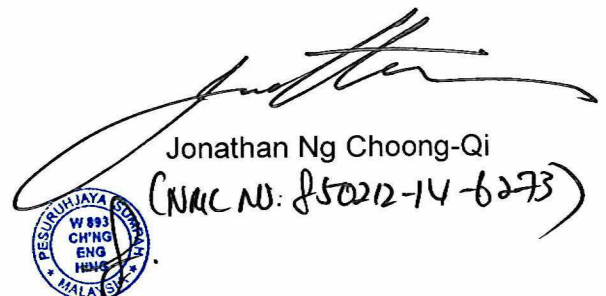 Jonathan Ng Choong-Qi
(NRIC NO: 850212-14-6273)
PESURUHJAYA SUMPAH
W 893
CH'NG
ENG
HING
MALAYSIA